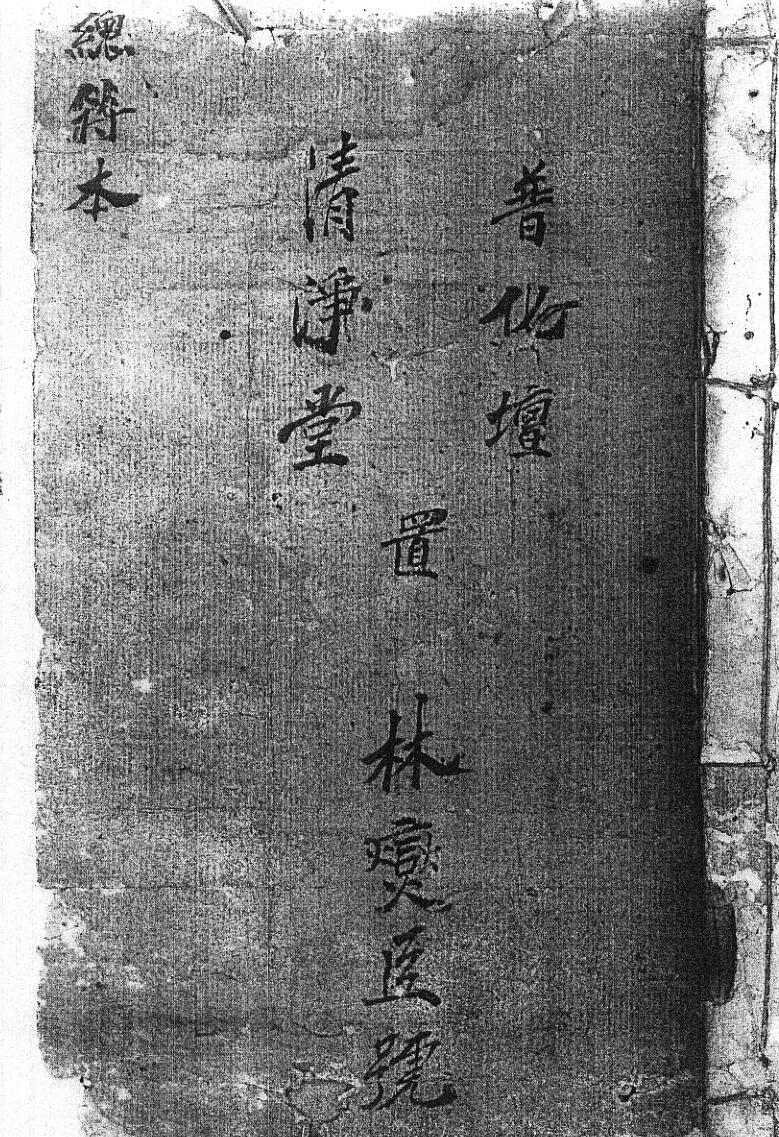 普壇
清淨堂
置 林燮臣號
總符本